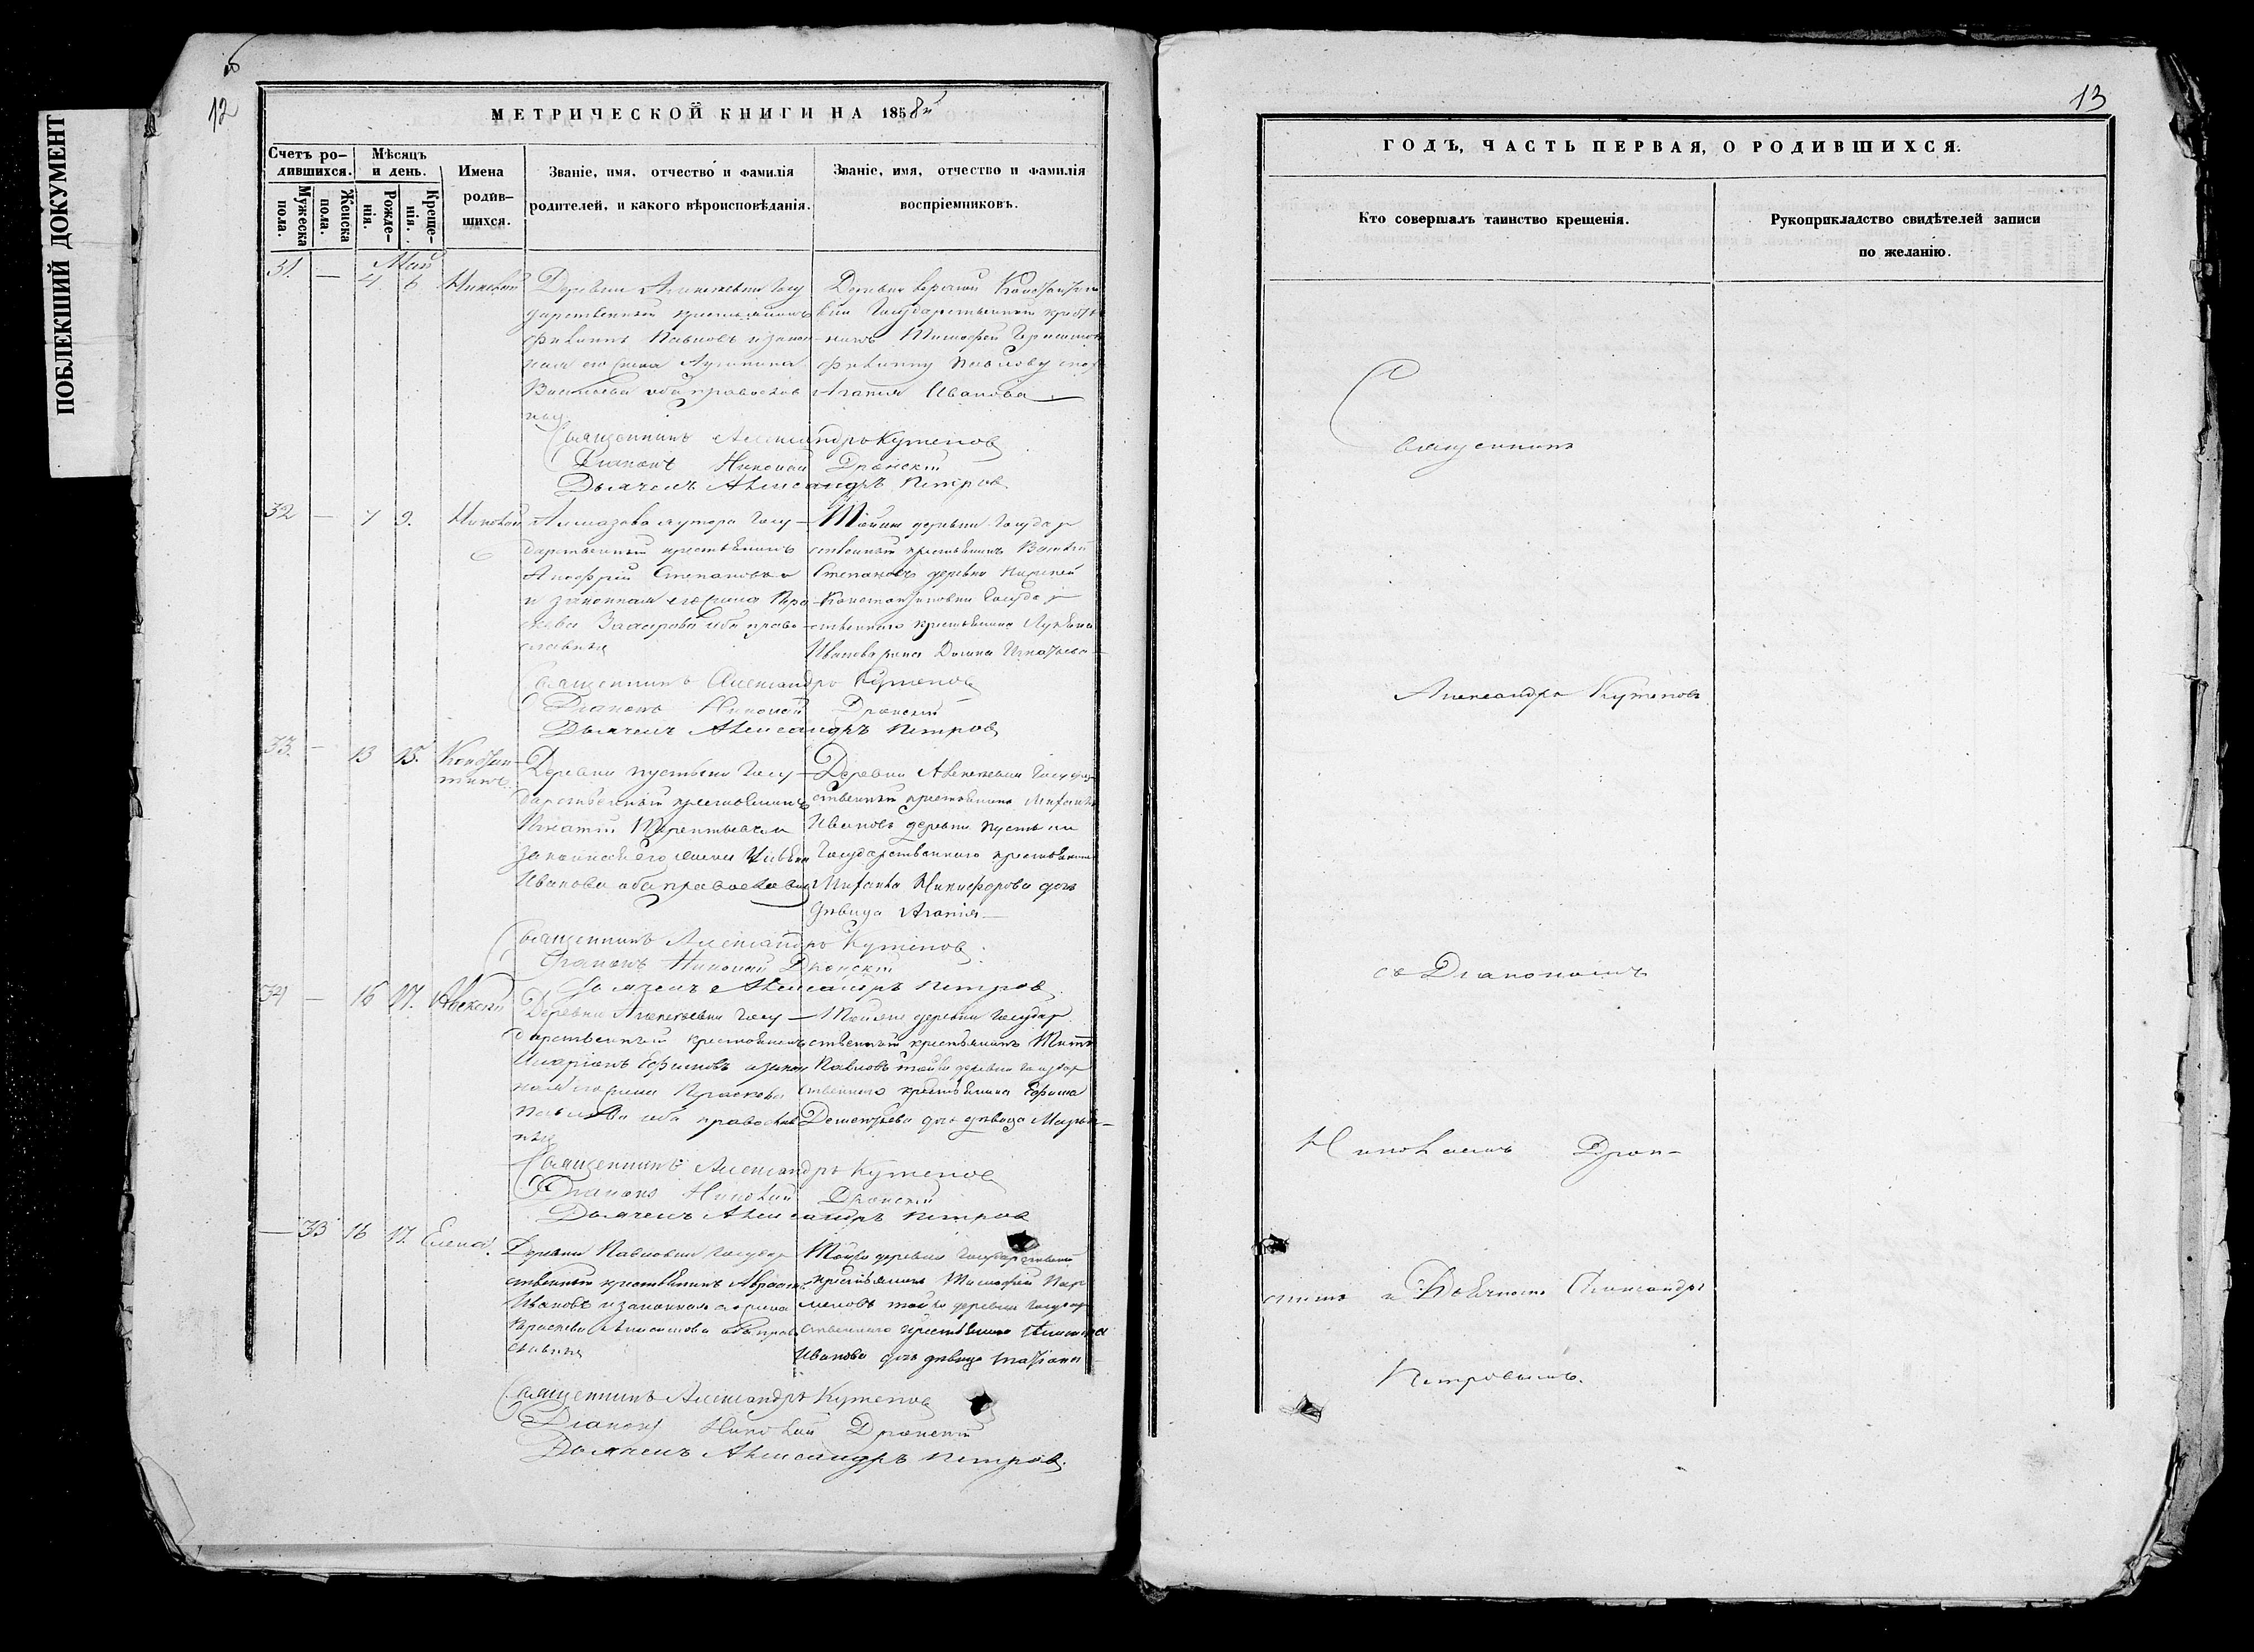 ПОБЛЕКШИЙ ДОКУМЕНТ
12
МЕТРИЧЕСКОЙ КНИГИ НА 1858й
Счетъ ро-
дившихся.
Мѣсяцъ
и день.
Имена
родив-
шихся.
Званіе, имя, отчество и фамилія
родителей, и какого вѣроисповѣданія.
Званіе, имя, отчество и фамилія
воспріемниковъ.
Мужеска
пола.
Женска
пола.
Рожде-
нія.
Креще-
нія.
Май
31. — 4. 6 Николай
Деревни Алексеевки Госу
дарственный крестьянинъ
Филиппъ Павловъ и закон
ная его жена Акулина
Васильева оба православ
ныя
Деревни верхней Константино
вки Государственный крестья
нинъ Тимофей Герасимов
Филиппу Павлову
Агапия Иванова
Священникъ Александръ Кутепов
Диаконъ Николай Дронский
Дьячекъ Александръ Петров
32 — 7 9. Николай
Алмазова хутора Госу-
дарственный крестьянинъ
Степановъ
и законная его жена Пара
скева Захарова оба право
славныя
Тойже деревни Государ
ственный крестьянинъ Василий
Степановъ деревни Нижней
Константиновки Государ
ственнаго крестьянина Лукьяна
Иванова жена Домна Игнатьева
Священникъ Александръ Кутепов
Диаконъ Николай Дронский
Дьячекъ Александръ Петров
33. — 13 15. Констан
тинъ
Деревни пустыни Госу-
дарственный крестьянинъ
Игнатий Терентьевъ и
законная его жена
Иванова оба православныя
Деревни Алексеевки Государ
ственный крестьянинъ Михаилъ
Ивановъ деревни пустыни
Государственнаго крестьянина
Михаила Никифорова дочь
девица Агапия
Священникъ Александръ Кутепов
Диаконъ Николай Дронский
Дьячекъ Александръ Петров
34 — 16 17. Алексей
Деревни Алексеевки Госу-
дарственный крестьянинъ
Иларионъ Ефимовъ и закон
ная его жена Параскева
Павлова оба православ
ныя
Тойже деревни Государ
ственный крестьянинъ Титъ
Павловъ тойже деревни Государ
ственнаго крестьянина Ефима
Дементьева дочь девица Марья
Священникъ Александръ Кутепов
Диаконъ Николай Дронский
Дьячекъ Александръ Петров
— 33 16 17. Елена
Деревни Павловки Государ
ственный крестьянинъ Авраам
Ивановъ и законная его жена
Параскева оба право
славныя
Тойже деревни Государственный
крестьянинъ Тимофей Пар
меновъ тойже деревни Государ
ственнаго крестьянина
Иванова дочь девица Татиана
Священникъ Александръ Кутепов
Диаконъ Николай Дронский
Дьячекъ Александръ Петров.
13
ГОДЪ, ЧАСТЬ ПЕРВАЯ, О РОДИВШИХСЯ.
Кто совершалъ таинство крещенія.
Рукоприкладство свидѣтелей записи
по желанію.
Священникъ
Александръ Кутеповъ
съ Диакономъ
Николаемъ Дрон-
скимъ и Дьячкомъ Александръ
Петровымъ.